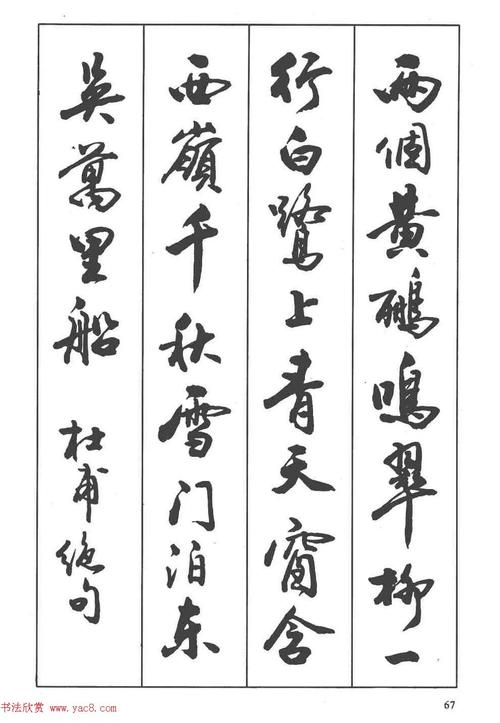 兩個黃鸝鳴翠柳一
行白鷺上青天窗含
西嶺千秋雪门泊东
吳萬里船
杜甫绝句
67
书法欣赏 www.yac8.com